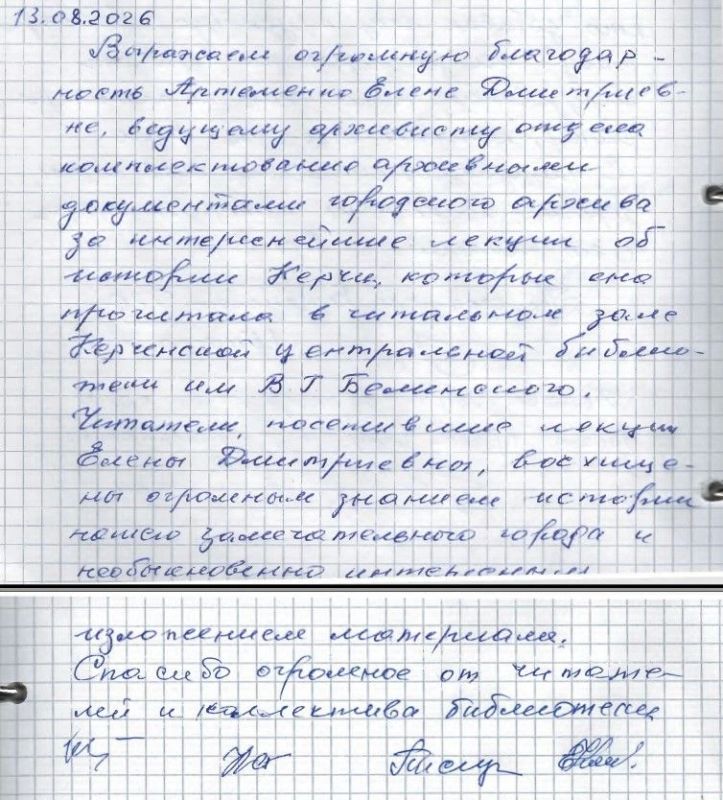 13.08.2026
Выражаем огромную благодар-
ность Артеменко Елене Дмитриев-
не, ведущему архивисту отдела
комплектования архивными
документами городского архива
за интереснейшие лекции об
истории Керчи, которые она
прочитала в читальном зале
Керченской центральной библио-
теки им В Г Белинского.
Читатели, посетившие лекции
Елены Дмитриевны, восхище-
ны огромным знанием истории
нашего замечательного города и
необыкновенно интересным
изложением материала.
Спасибо огромное от читате-
лей и коллектива библиотеки